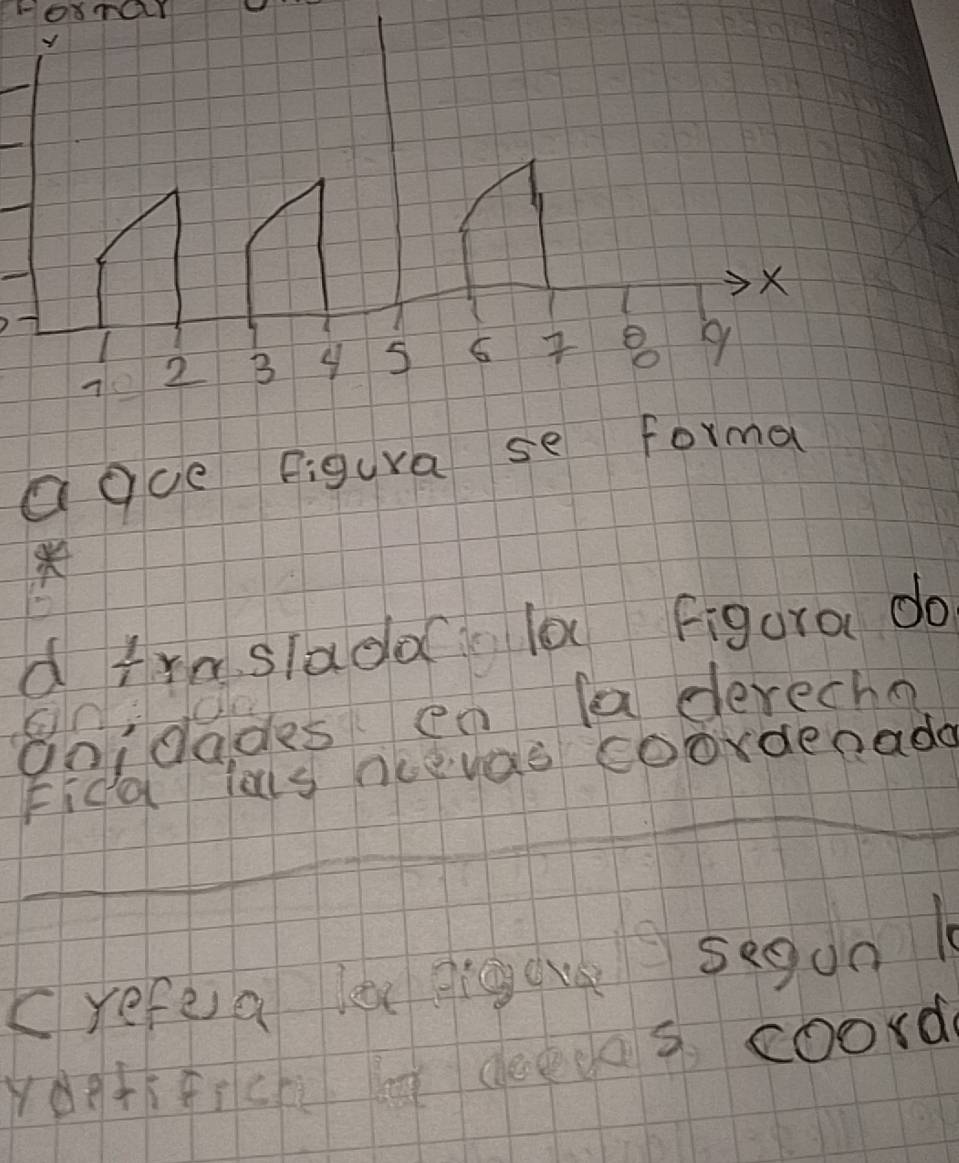 Formar
Y
X
1 2 3 4 5 6 7 8 9
a que figura se forma
*
d traslada la figura do
unidades en la derecha
Fica las nuevas coordenada
c refeja la figura segun l
y coord